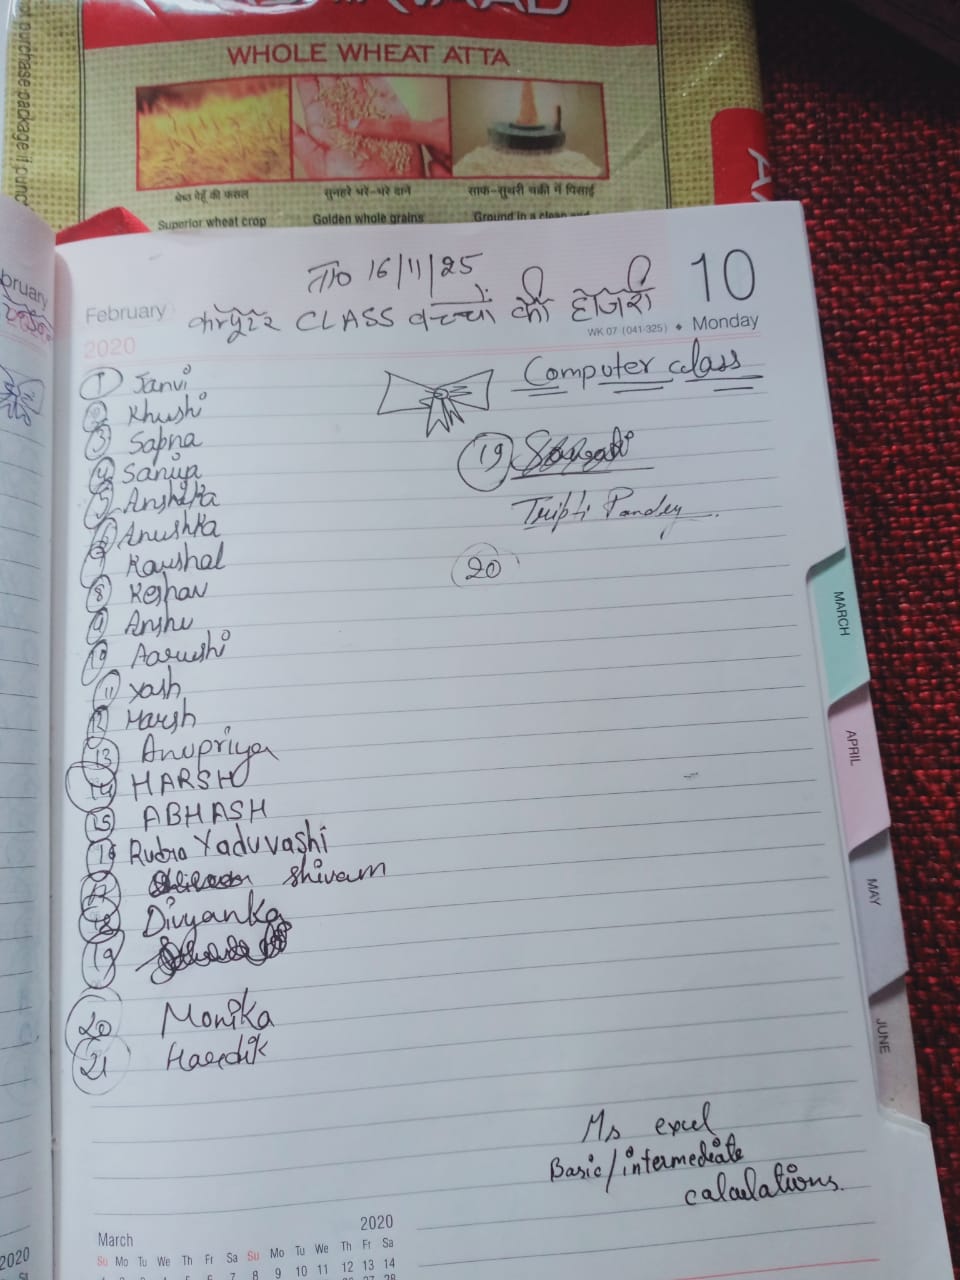 WHOLE WHEAT ATTA
श्रेष्ठ गेहूँ की फसल
सुनहरे भरे-भरे दाने
साफ-सुथरी चक्की में पिसाई
Superior wheat crop
Golden whole grains
Ground in a clean
purchase package if punc
bruary
16/11/25
February
10
CLASS बच्चों की
2020
WK 07 (041-325) ◆ Monday
Computer class
1 Janvi
2 Khushi
3 Sapna
4 Saniya
5 Anshika
6 Anushka
7 Kaushal
8 Keshav
9 Anshu
10 Aarushi
11 Yash
12 Harsh
13 Anupriya
14 HARSH
15 ABHASH
16 Rudra Yaduvashi
17 Shivam
18 Divyanka
19
20 Monika
21 Hardik
19
Tripti Pandey
20
MARCH
APRIL
MAY
JUNE
Ms excel
Basic/intermediate
calculations.
2020
March 2020
Su Mo Tu We Th Fr Sa Su Mo Tu We Th Fr Sa
7 8 9 10 11 12 13 14